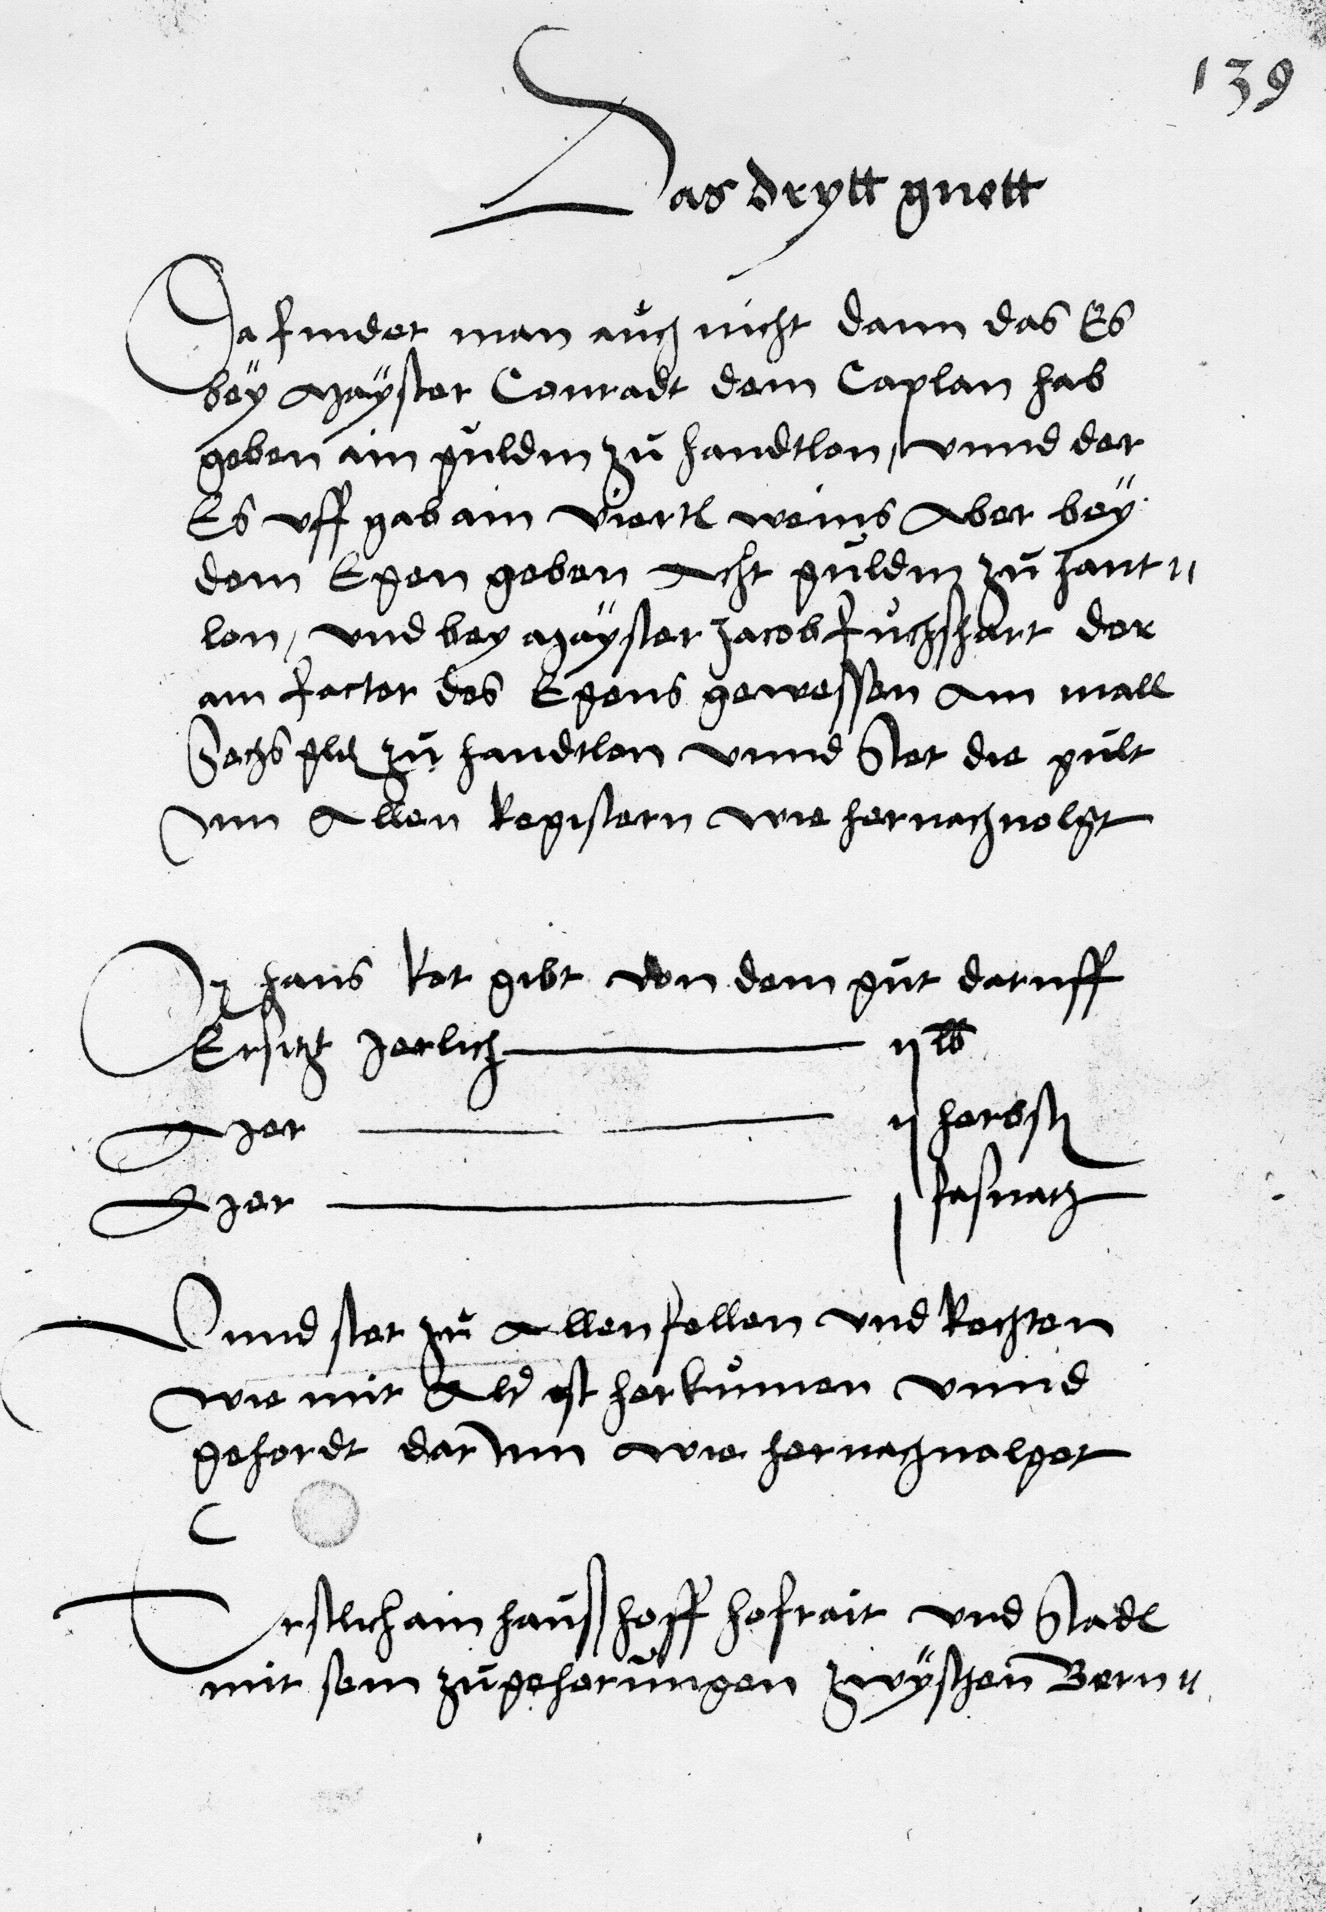 139
Das drytt guett
Da findet man auch nicht dann das Es
bëy Mayster Conradt dem Caplan hab
geben ain guldin zu handtlon, vnnd der
Es vff gab ain viertl weins Aber bëy
dem Egen geben Acht guldin zu Hant⸗
lon, vnd bey Mäyster Jacob fuchshart der
ain factor des Egens gewessen Ain mall
Sechs gld zu handtlon vnnd Stet die gult
Inn Allen Registern wie hernachuolgt
Hans Rot gibt von dem gut daruff
Ersitzt Jerlich — ij lb
Ayer — ij herbsth
Ayer — j fasnach
Vnnd stet zu Allen fellen vnd Rechten
wie mit Alter ist herkumen vnnd
gehordt darInn wie hernachuolget
Erstlich ain hauß hoff hofrait vnd Stadl
mit sein zugeherungen zwyschen Bern⸗